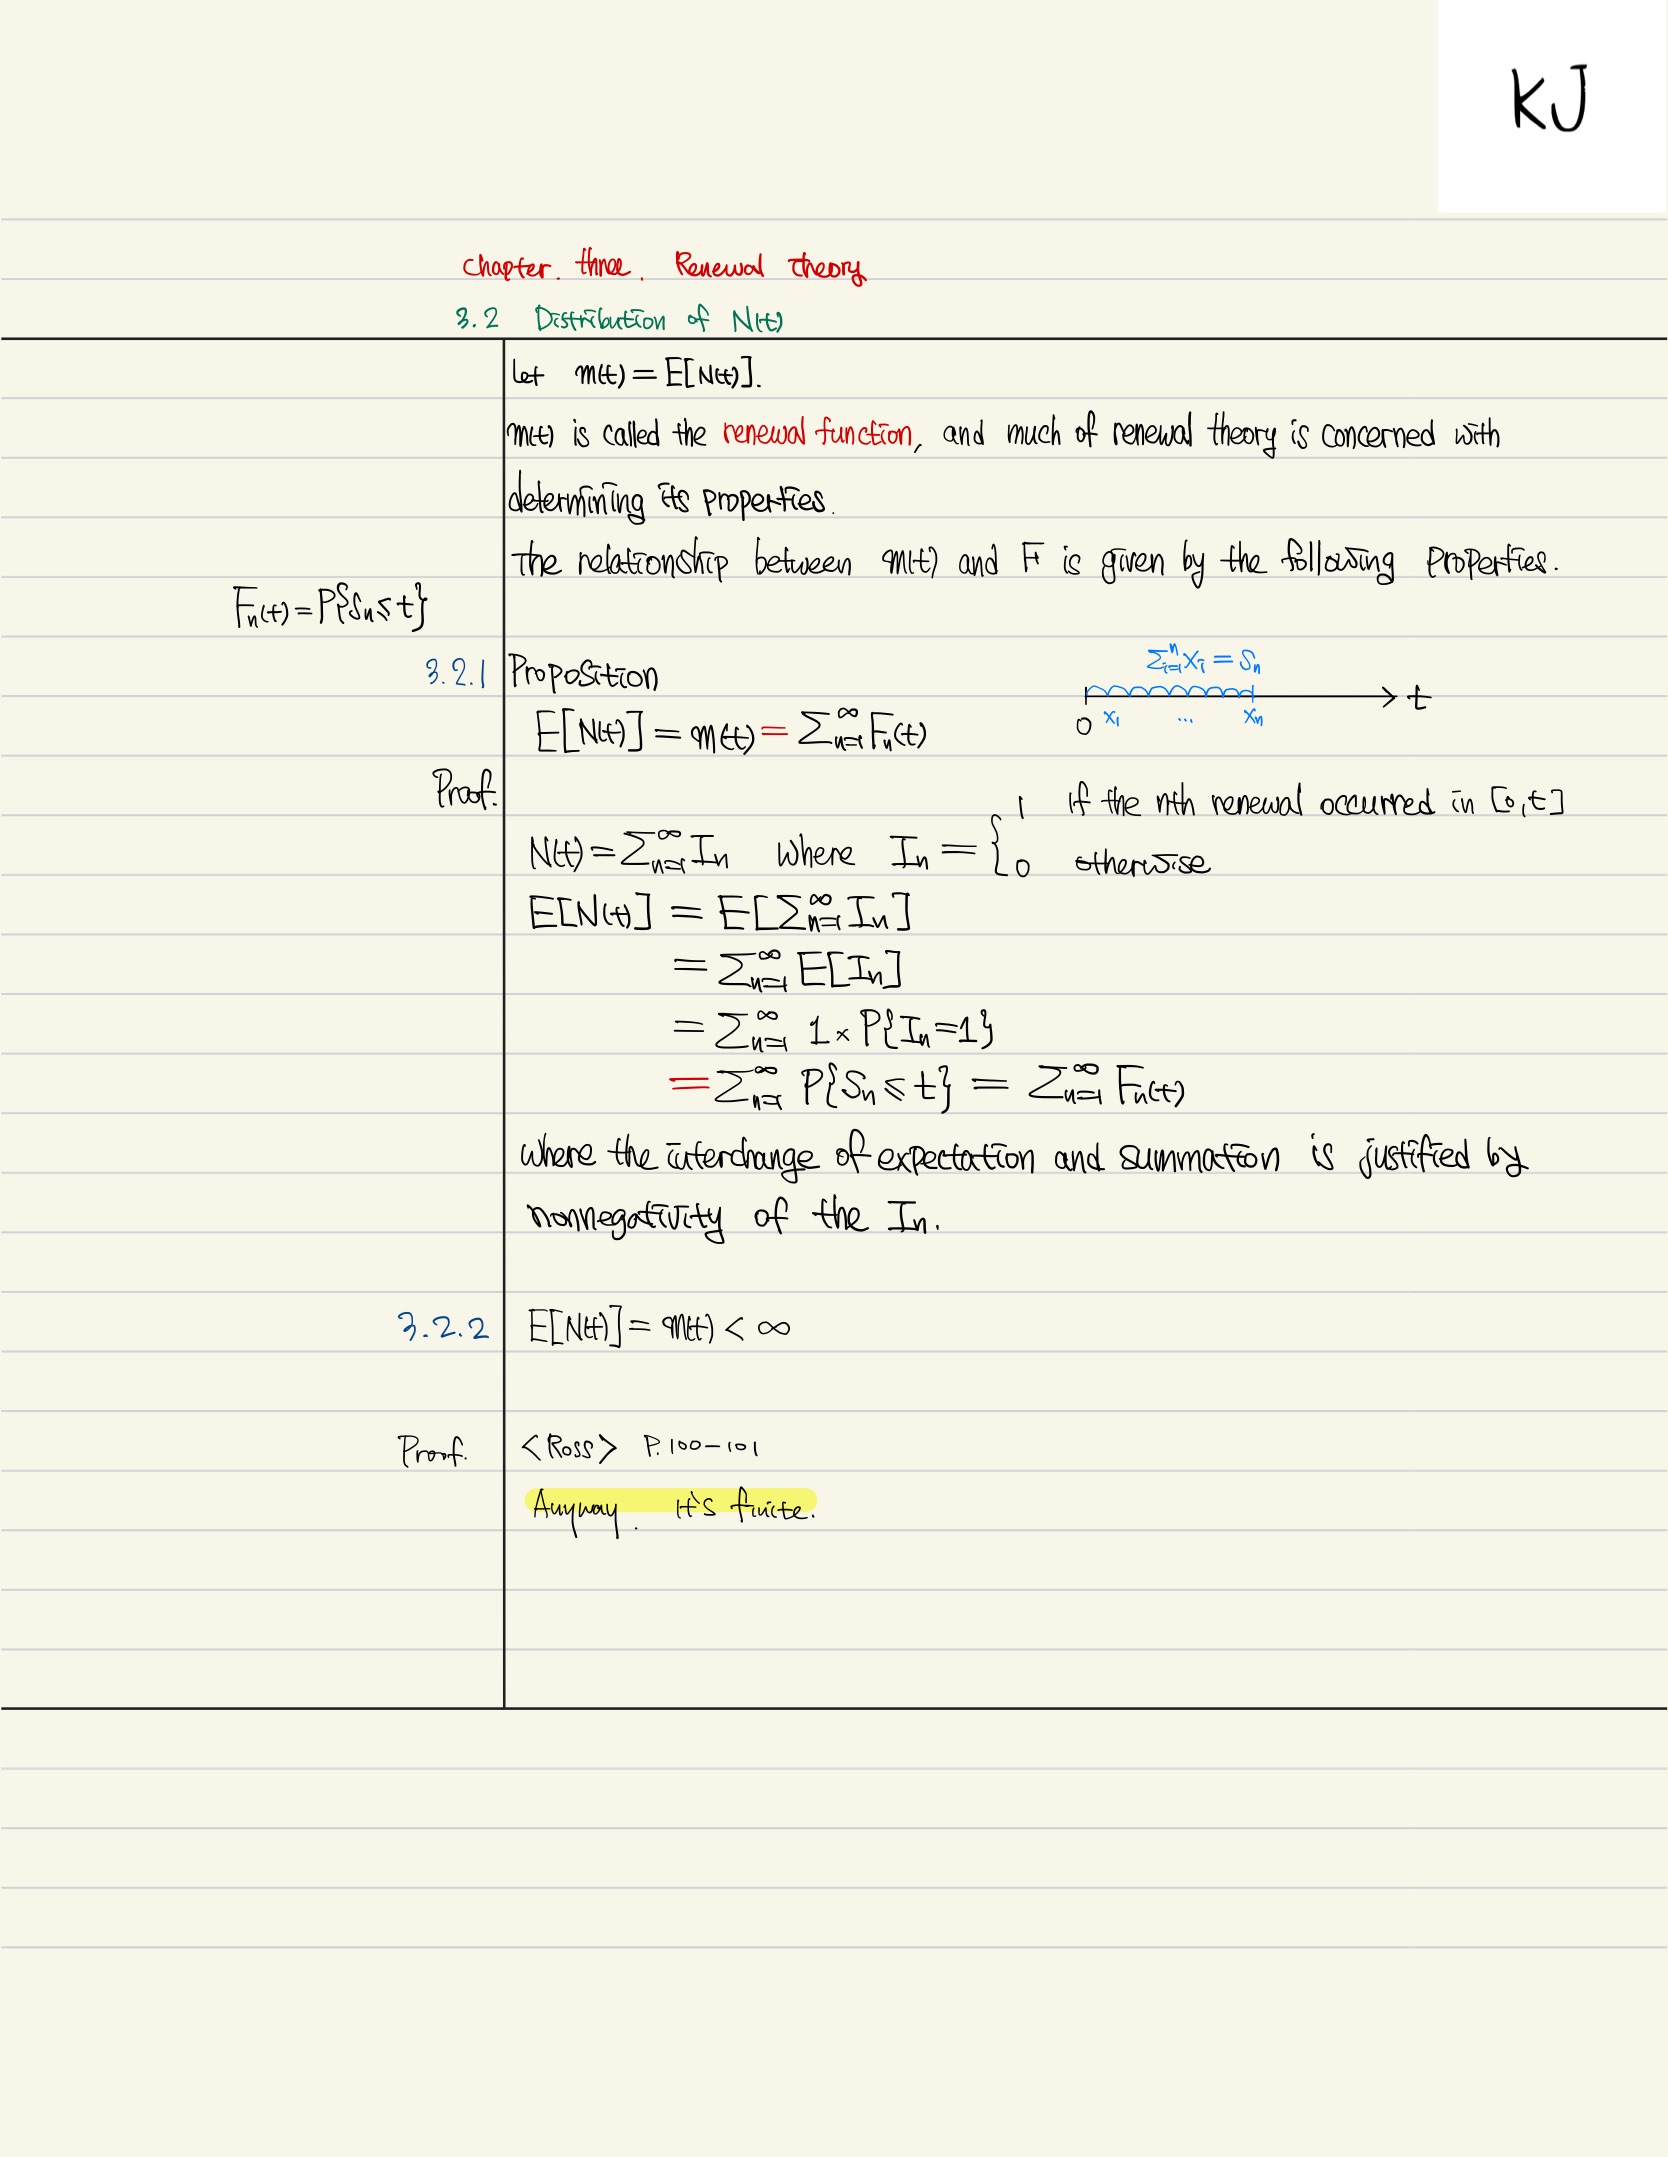 KJ
Chapter. three. Renewal Theory
3.2 Distribution of N(t)
Let m(t) = E[N(t)].
m(t) is called the renewal function, and much of renewal theory is concerned with
determining its properties.
The relationship between m(t) and F is given by the following properties.
Fₙ(t) = P{Sₙ ≤ t}
3.2.1 Proposition
∑ᵢ₌₁ⁿ Xᵢ = Sₙ
0 X₁ ... Xₙ t
E[N(t)] = m(t) = ∑ₙ₌₁^∞ Fₙ(t)
Proof.
N(t) = ∑ₙ₌₁^∞ Iₙ where Iₙ = { 1 if the nth renewal occurred in [0,t]
0 otherwise
E[N(t)] = E[∑ₙ₌₁^∞ Iₙ]
= ∑ₙ₌₁^∞ E[Iₙ]
= ∑ₙ₌₁^∞ 1 × P{Iₙ=1}
= ∑ₙ₌₁^∞ P{Sₙ ≤ t} = ∑ₙ₌₁^∞ Fₙ(t)
where the interchange of expectation and summation is justified by
nonnegativity of the Iₙ.
3.2.2 E[N(t)] = m(t) < ∞
Proof. <Ross> P.100-101
Anyway. It's finite.